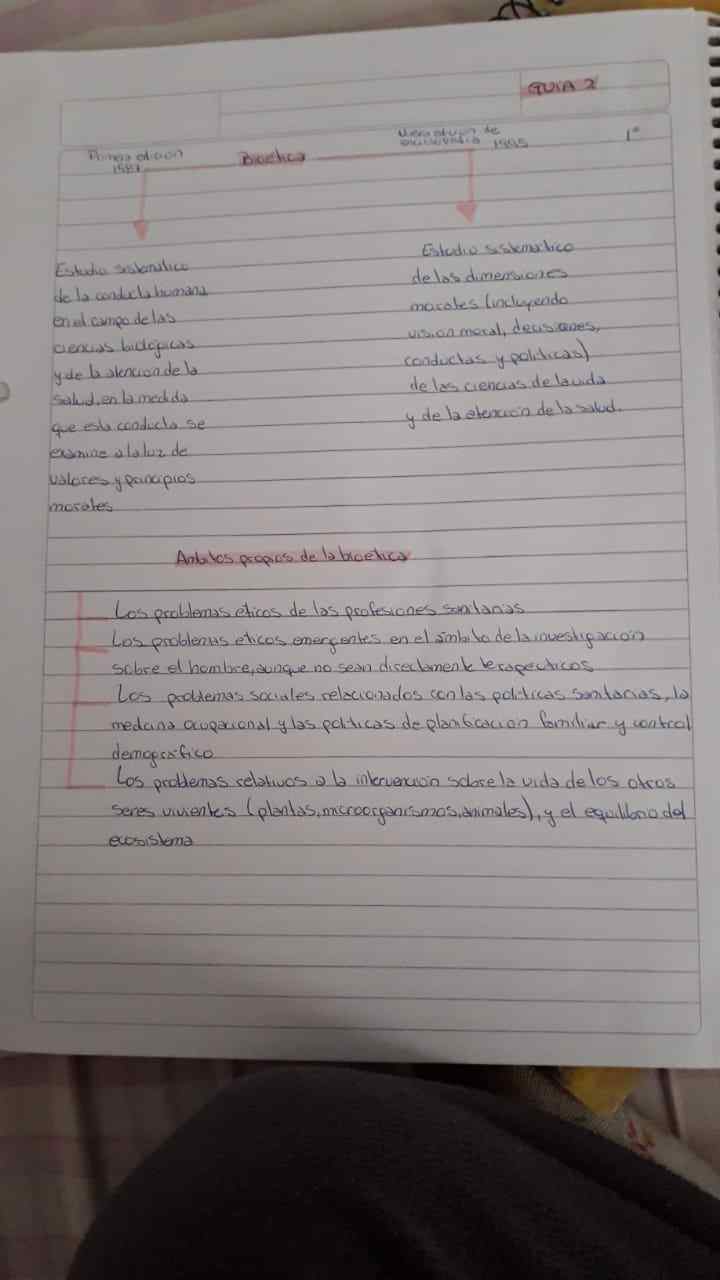 GUIA 2
Primera edicion
Bioetica
1995
1°
Estudio sistematico
de la conducta humana
en el campo de las
ciencias biologicas
y de la atencion de la
salud, en la medida
que esta conducta se
examine a la luz de
valores y principios
morales
Estudio sistematico
de las dimensiones
morales (incluyendo
vision moral, decisiones,
conductas y politicas)
de las ciencias de la vida
y de la atencion de la salud.
Ambitos propios de la bioetica
Los problemas eticos de las profesiones sanitarias
Los problemas eticos emergentes en el ámbito de la investigacion
sobre el hombre, aunque no sean directamente terapeuticos
Los problemas sociales relacionados con las politicas sanitarias, la
medicina ocupacional y las politicas de planificacion familiar y control
demografico
Los problemas relativos a la intervencion sobre la vida de los otros
seres vivientes (plantas, microorganismos, animales), y el equilibrio del
ecosistema